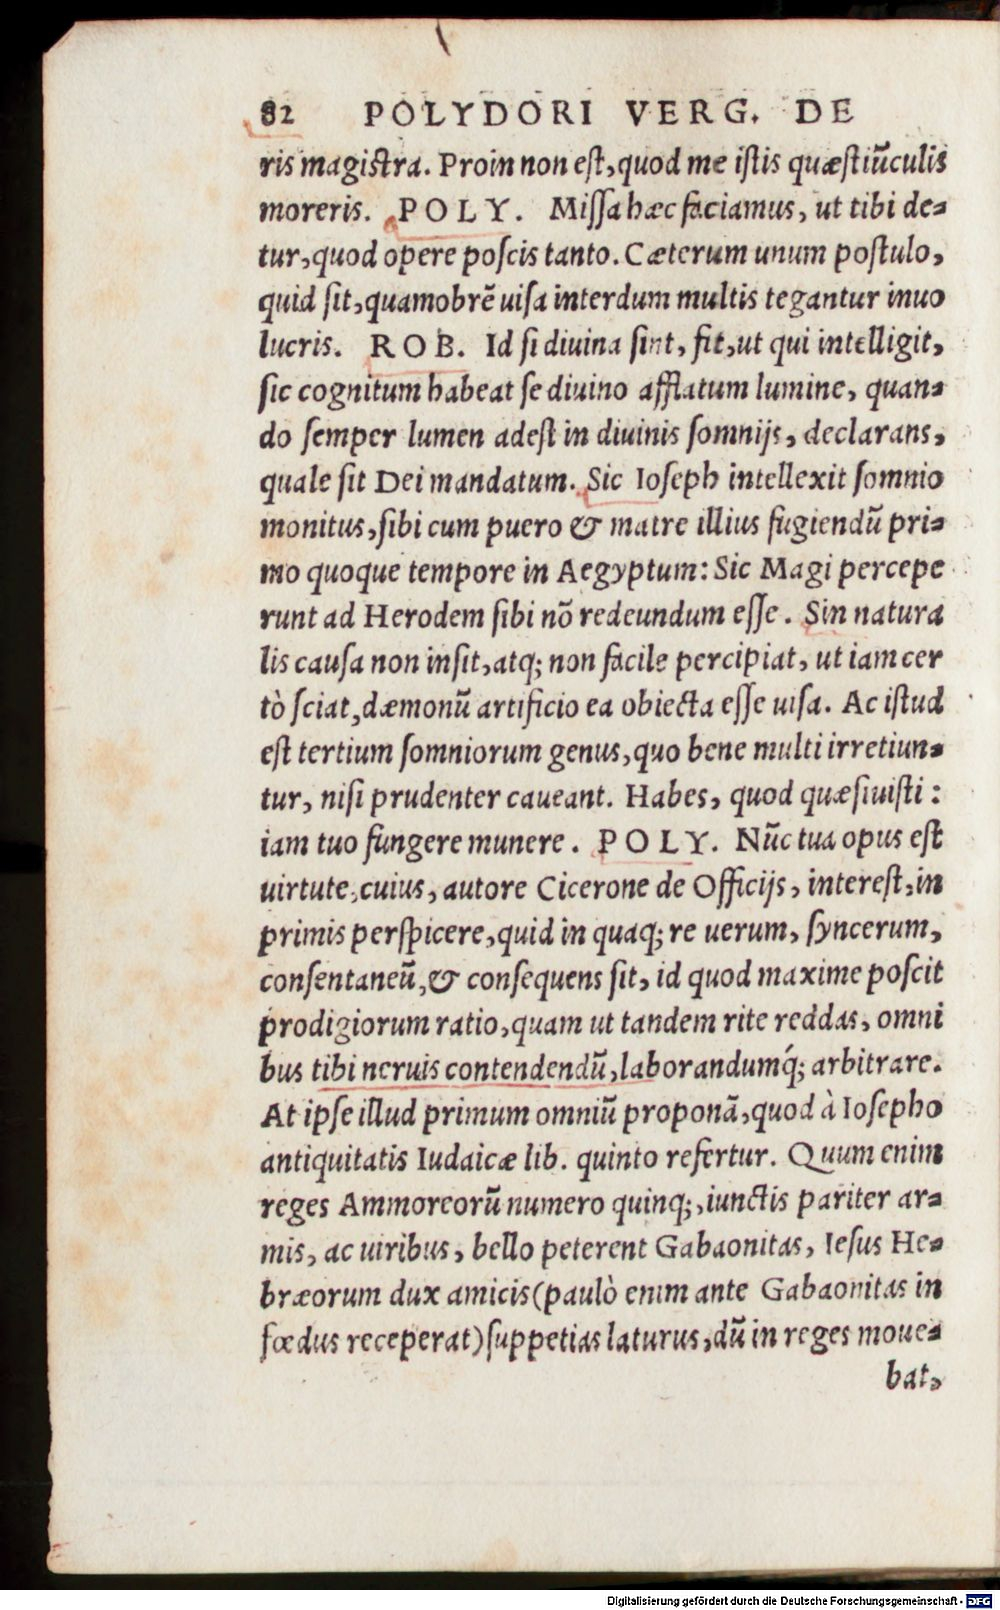 82 POLYDORI VERG. DE
ris magistra. Proin non est, quod me istis quæstiũculis
moreris. POLY. Missa hæc faciamus, ut tibi de-
tur, quod opere poscis tanto. Cæterum unum postulo,
quid sit, quamobrẽ uisa interdum multis tegantur inuo
lucris. ROB. Id si diuina sint, fit, ut qui intelligit,
sic cognitum habeat se diuino afflatum lumine, quan-
do semper lumen adest in diuinis somnijs, declarans,
quale sit Dei mandatum. Sic Ioseph intellexit somnio
monitus, sibi cum puero & matre illius fugiendũ pri-
mo quoque tempore in Aegyptum: Sic Magi percepe
runt ad Herodem sibi nõ redeundum esse. Sin natura
lis causa non insit, atq; non facile percipiat, ut iam cer
tò sciat, dæmonũ artificio ea obiecta esse uisa. Ac istud
est tertium somniorum genus, quo bene multi irretiun-
tur, nisi prudenter caueant. Habes, quod quæsiuisti:
iam tuo fungere munere. POLY. Nũc tua opus est
uirtute, cuius, autore Cicerone de Officijs, interest, in
primis perspicere, quid in quaq; re uerum, syncerum,
consentaneũ, & consequens sit, id quod maxime poscit
prodigiorum ratio, quam ut tandem rite reddas, omni
bus tibi neruis contendendũ, laborandumq́; arbitrare.
At ipse illud primum omniũ proponã, quod à Iosepho
antiquitatis Iudaicæ lib. quinto refertur. Quum enim
reges Ammoreorũ numero quinq;, iunctis pariter ar-
mis, ac uiribus, bello peterent Gabaonitas, Iesus He-
bræorum dux amicis (paulò enim ante Gabaonitas in
fœdus receperat) suppetias laturus, dũ in reges moue-
bat,
Digitalisierung gefördert durch die Deutsche Forschungsgemeinschaft - DFG